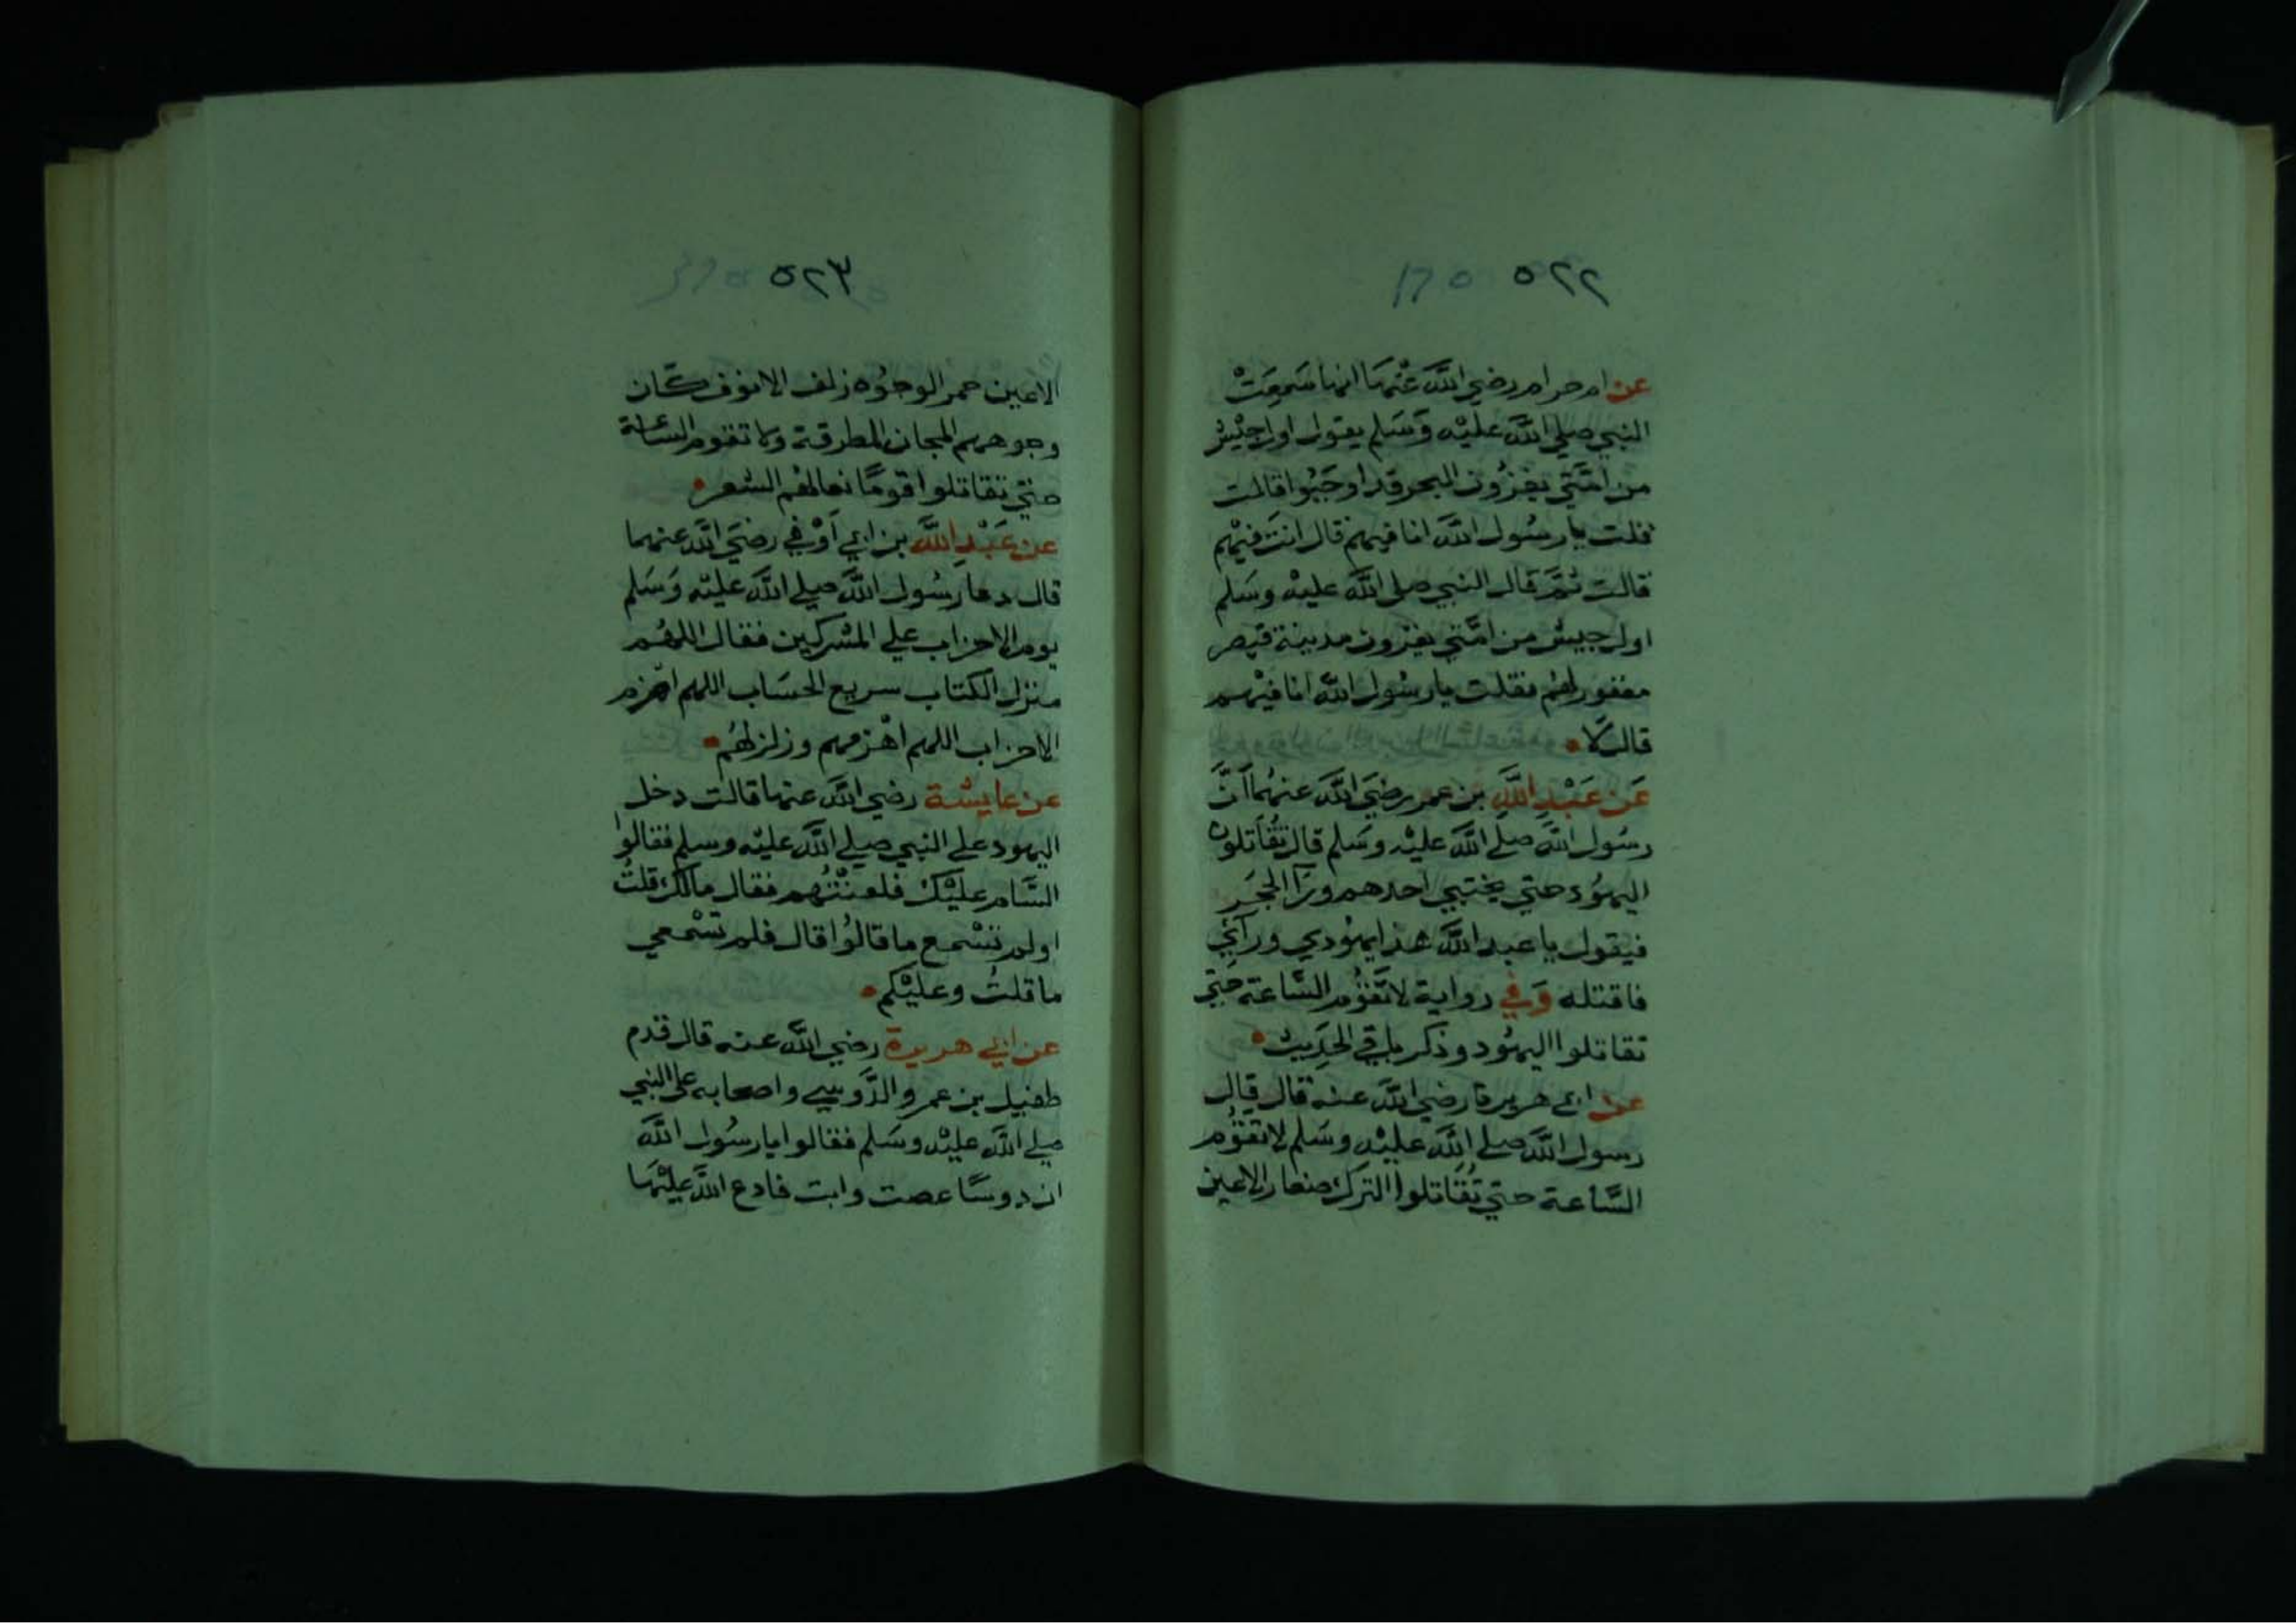 ٥٢٢
عن ام حرام رضي اللَّه عنْهَا انها سَمِعَتْ
النبي صلي اللَّه عليْه وَسَلم يقول اول جيْش
من امَّتي يغزُون البحر قد اوجَبُوا قالت
قلت يا رسُول اللَّه انا فيهم قال انت فيْهم
قالت ثمَّ قال النبي صلي اللَّه عليْه وسَلم
اول جيش من امَّتي يغزون مدينة قيصر
مغفور لهُم فقلت يا رسُول اللَّه انا فيْهم
قال لَا
عَن عَبْدِ اللَّهِ بن عمر رضيَ اللَّه عنهُمَا اَنَّ
رسُول اللَّه صلي اللَّه عليْه وسَلم قال تقَاتلون
اليهُود حتي يختبي احدهم ورَآ الحجَر
فيقول يا عبد اللَّه هذا يهُودي ورآئي
فاقتله وَفي رواية لا تقُوم السَّاعة حَتي
تقاتلوا اليهُود وذكر باقي الحَدِيث
عن ابي هريرة رضي اللَّه عنه قال قال
رسول اللَّه صلي اللَّه عليْه وسَلم لا تقوُم
السَّاعة حتي تُقَاتلوا الترك صغار الاعين
٥٢٣
الاعين حمر الوجُوه زلف الانوف كَان
وجوههم المجان المطرقة ولا تقوم السَّاعة
حتي تقاتلوا قومًا نعالهُم الشعر
عن عَبْدِ اللَّه بن ابي اَوْفي رضيَ اللَّه عنهما
قال دعا رسُول اللَّه صلي اللَّه عليْه وَسَلم
يوم الاحزاب علي المشركين فقال اللهُم
منزل الكتاب سريع الحسَاب اللهم اهزم
الاحزاب اللهم اهْزمهم وزلزلهُم
عن عايشة رضي اللَّه عنها قالت دخل
اليهود علي النبي صلي اللَّه عليْه وسلم فقالوا
السَّام عليْك فلعنتُهم فقال مالك قلتُ
اولم تسْمع ما قالوُا قال فلم تسْمعي
ما قلتُ وعليْكم
عن ابي هريرة رضي اللَّه عنه قال قدم
طفيل بن عمرو الدَّوسي واصحابه علي النبي
صلي اللَّه عليْه وسَلم فقالوا يا رسُول اللَّه
ان دوسًا عصت وابت فادع اللَّه عليْهَا